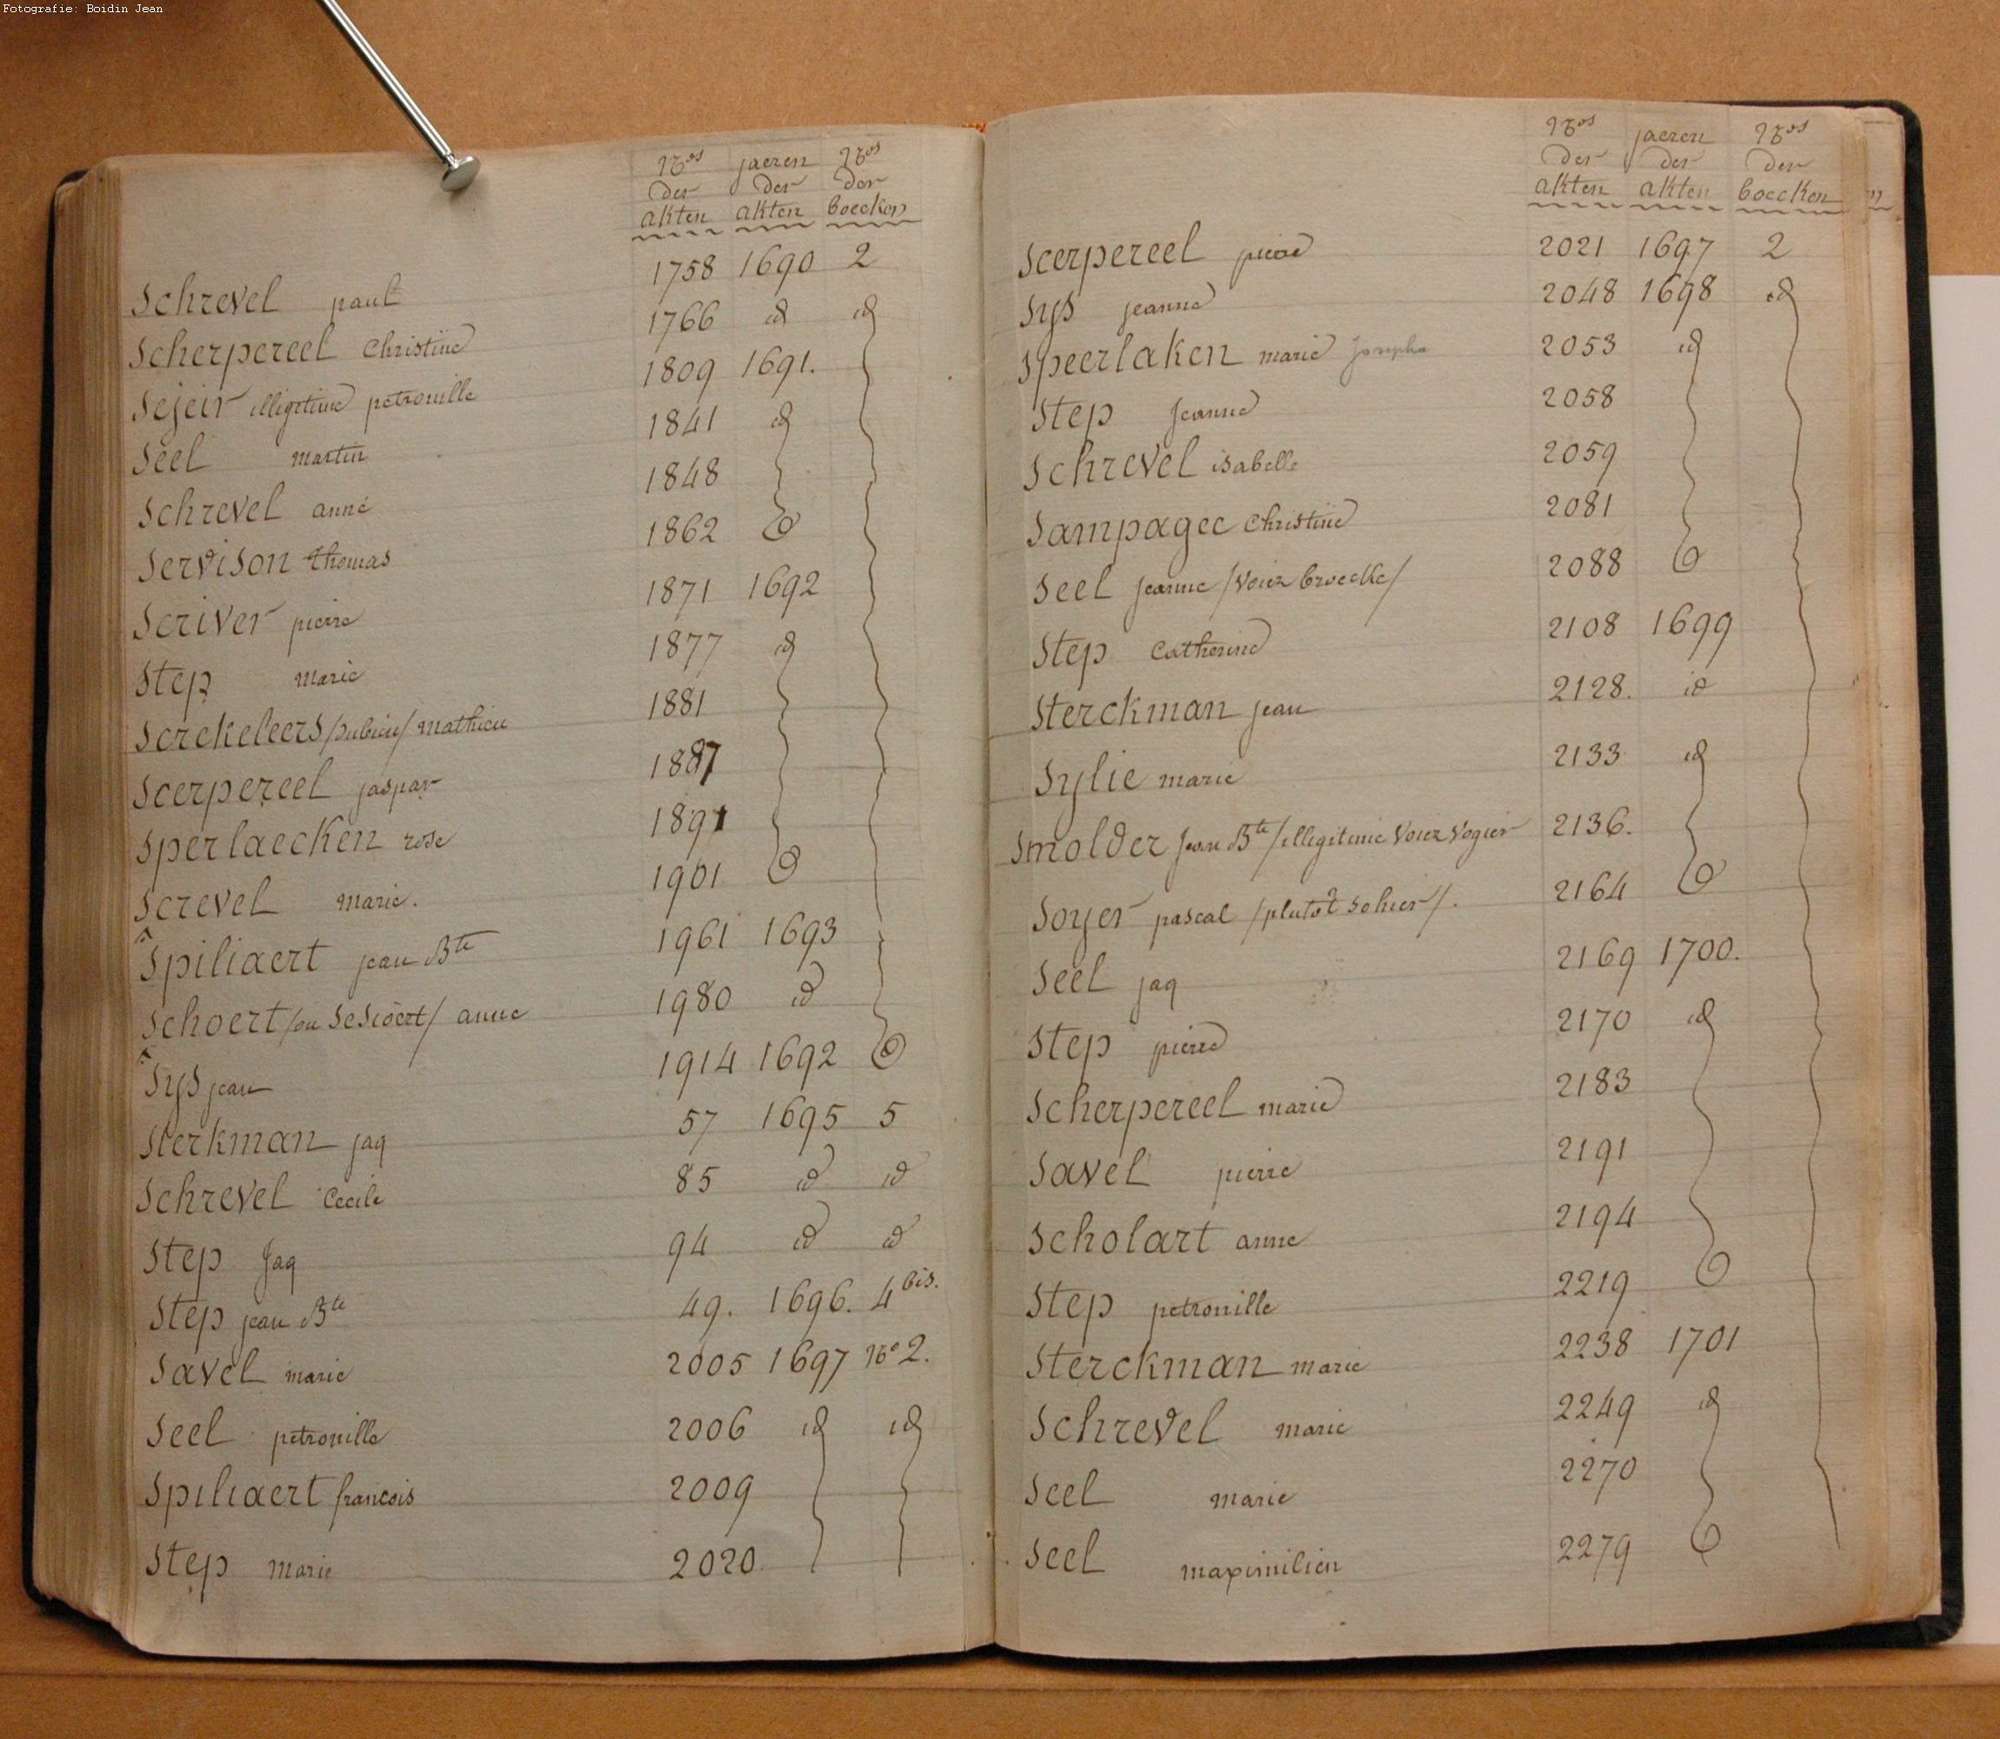 Fotografie: Boidin Jean
Nos der akten jaeren der akten Nos der boecken
Schrevel paul 1758 1690 2
Scherpereel Christine 1766 id id
Sejeir illigitime petronille 1809 1691.
Seel martin 1841 id
Schrevel anne 1848
Servison thomas 1862
Scriver pierre 1871 1692
Step marie 1877 id
Screkeleers /dubieu/ mathieu 1881
Scerpereel jaspar 1887
Sperlaecken rose 1891
Screvel marie. 1901
Spiliaert jean Bte 1961 1693
Schoert /ou Sesioert/ anne 1980 id
Sys jean 1914 1692
Sterkman jaq 57 1695 5
Schrevel Cecile 85 id id
Step Jaq 94 id id
Step jean Bte 49. 1696. 4 bis.
Savel marie 2005 1697 No 2.
Seel petronille 2006 id id
Spiliaert francois 2009
Step marie 2020
Nos der akten jaeren der akten Nos der boecken
Scerpereel pierre 2021 1697 2
Sys jeanne 2048 1698 id
Speerlaken marie Josepha 2053 id
Step Jeanne 2058
Schrevel isabelle 2059
Sampagee Christine 2081
Seel Jeanne /Voiez broecke/ 2088
Step Catherine 2108 1699
Sterckman jean 2128. id
Sylie marie 2133 id
Smolder Jean Bte /illigitime Voiez Vogier 2136.
Soyer pascal /plutot Sohier/. 2164
Seel jaq 2169 1700.
Step pierre 2170 id
Scherpereel marie 2183
Savel pierre 2191
Scholart anne 2194
Step petronille 2219
Sterckman marie 2238 1701
Schrevel marie 2249 id
Seel marie 2270
Seel maximilien 2279